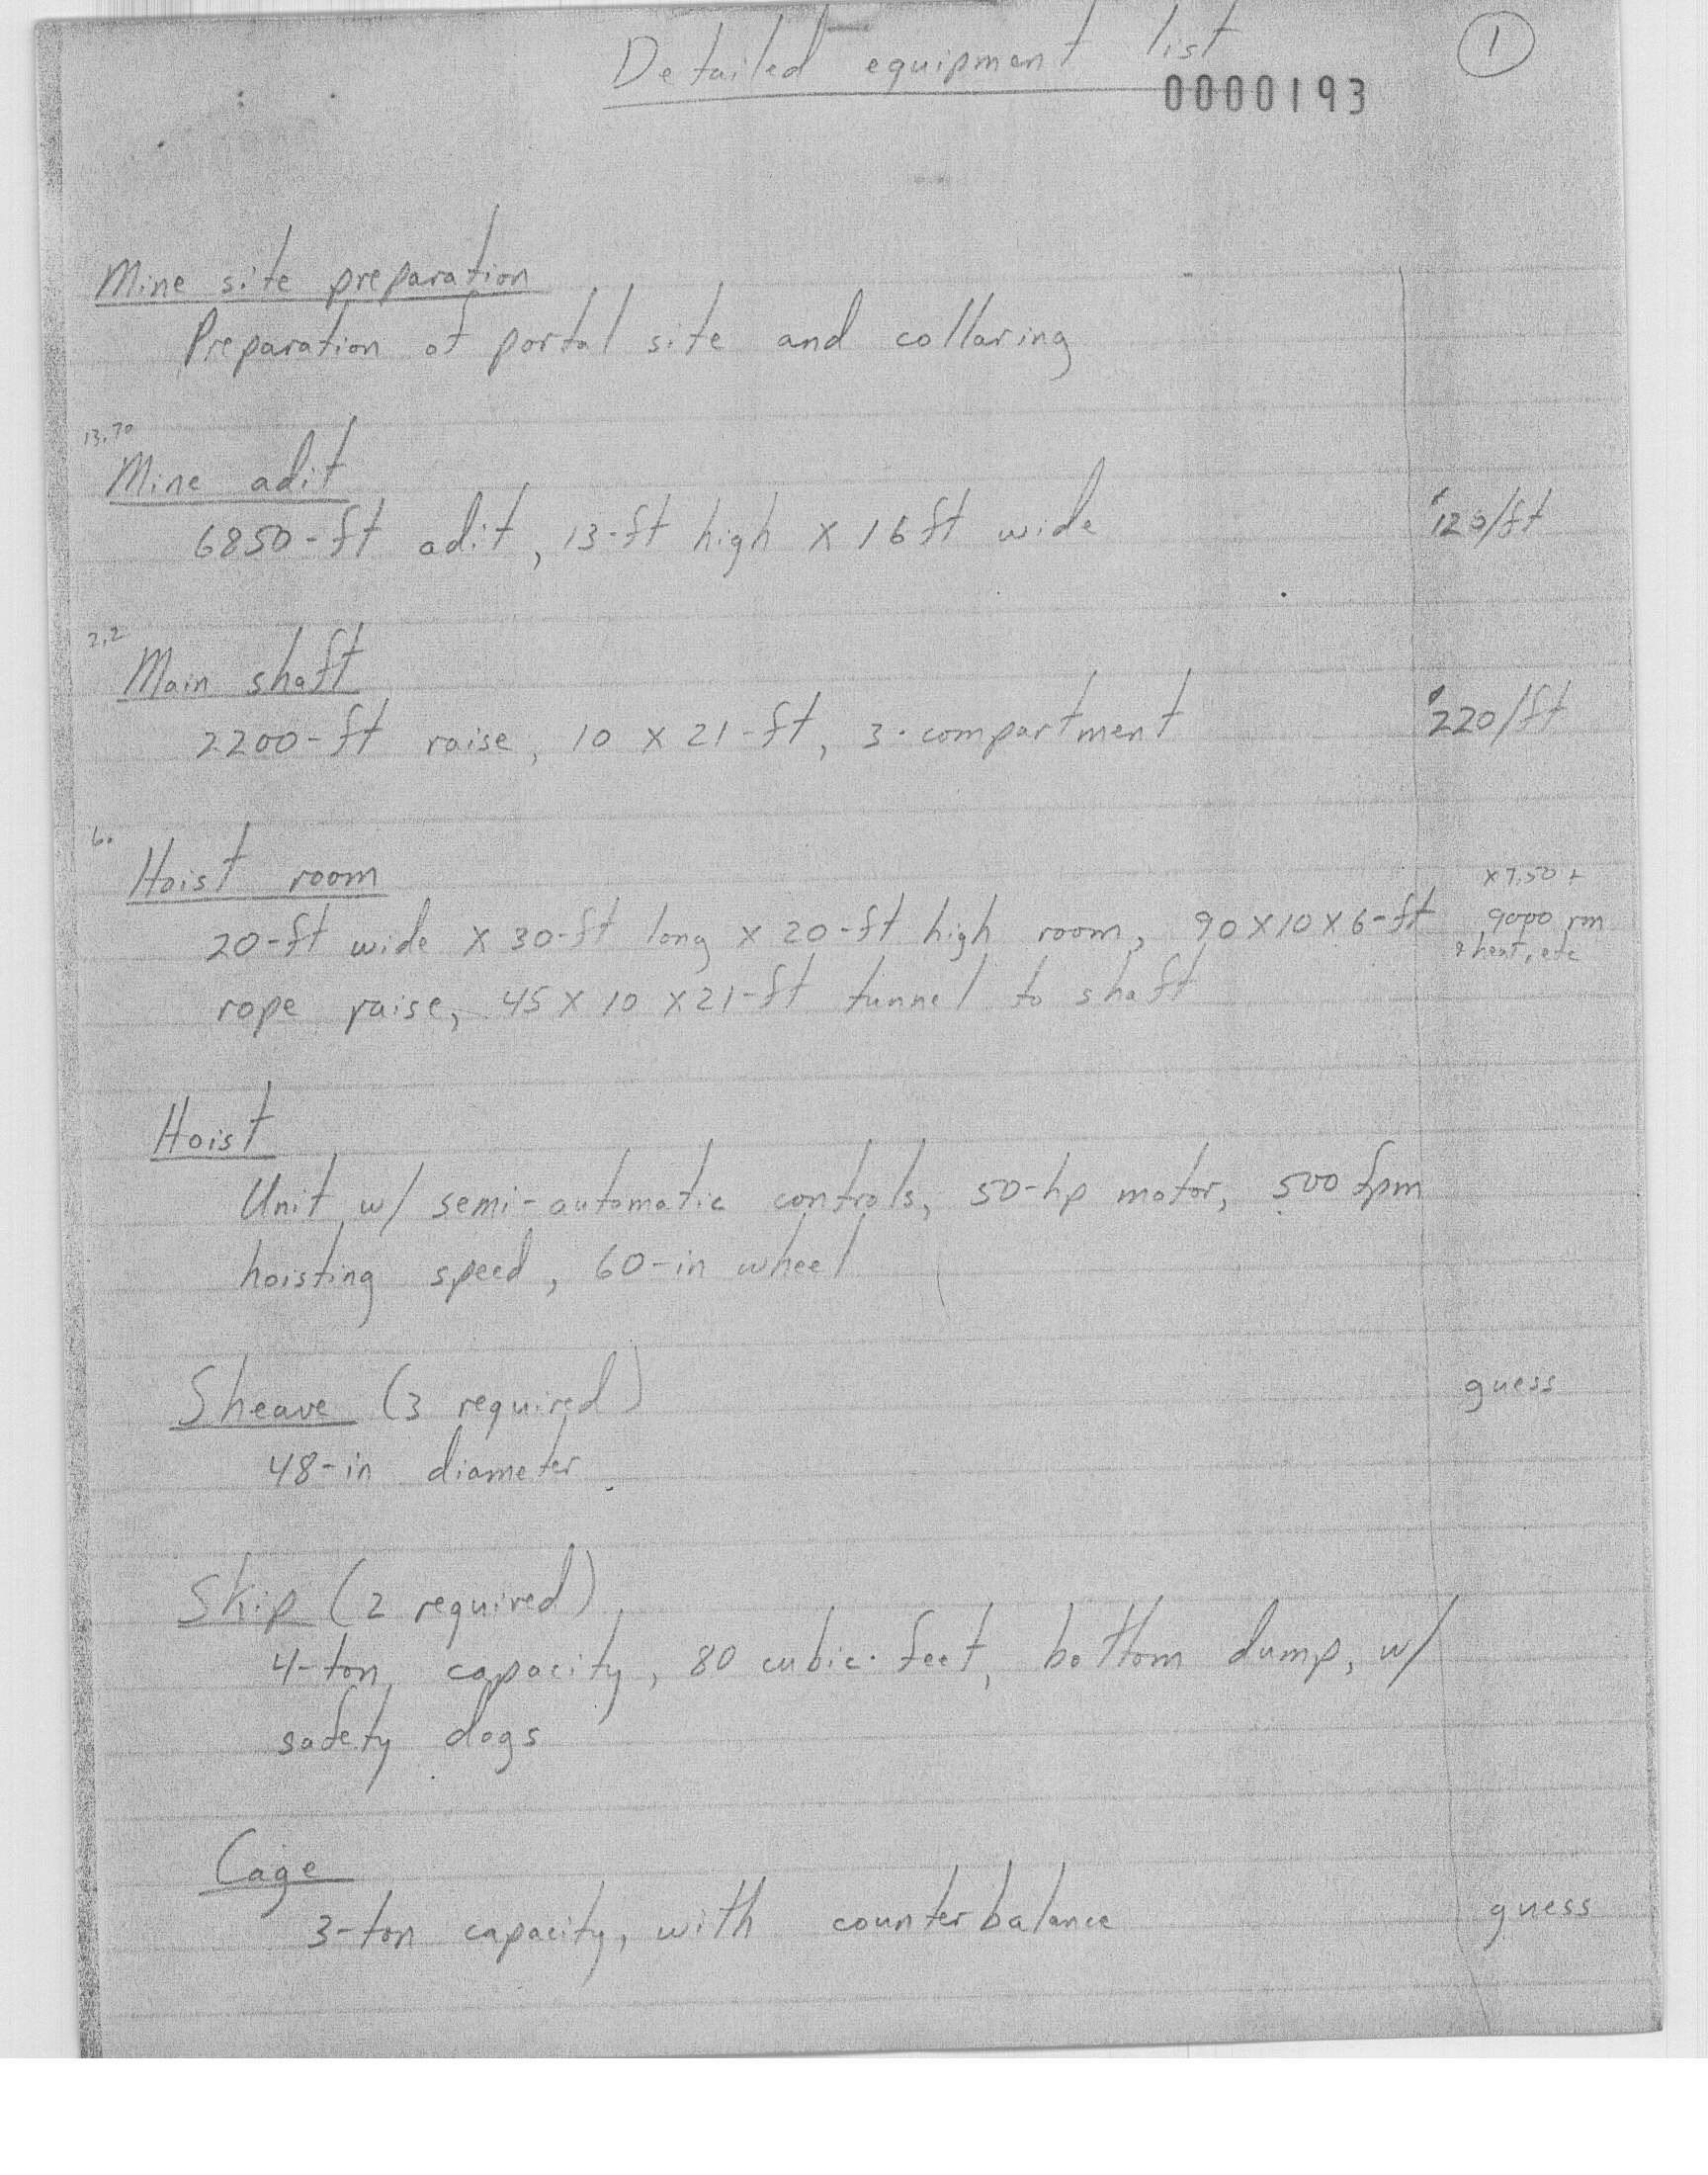 Detailed equipment list
1
0000193
Mine site preparation
Preparation of portal site and collaring
13.70
Mine adit
6850-ft adit, 13-ft high x 16 ft wide
120/ft
2.2
Main shaft
2200-ft raise, 10 x 21-ft, 3-compartment
220/ft
6.
Hoist room
x 7.50 +
20-ft wide x 30-ft long x 20-ft high room, 90x10x6-ft
9000 rm
& heat, etc
rope raise, 45 x 10 x 21-ft tunnel to shaft
Hoist
Unit w/ semi-automatic controls, 50-hp motor, 500 fpm
hoisting speed, 60-in wheel
Sheave (3 required)
guess
48-in diameter
Skip (2 required)
4-ton capacity, 80 cubic feet, bottom dump, w/
safety dogs
Cage
3-ton capacity, with counterbalance
guess